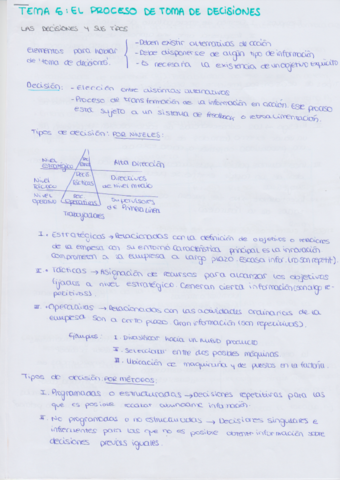 TEMA 6: EL PROCESO DE TOMA DE DECISIONES
LAS DECISIONES Y SUS TIPOS
- Deben existir alternativas de acción
Elementos para hablar
- Debe disponerse de algún tipo de información
de toma de decisiones.
- Es necesaria la existencia de un objetivo explícito
Decisión: - Elección entre distintas alternativas
- Proceso de transformación de la información en acción. Este proceso
está sujeto a un sistema de feedback o retroalimentación.
Tipos de decisión: POR NIVELES:
Nivel estratégico
Alta Dirección
Nivel
Directivos
de nivel medio
Nivel operativo
Supervisores
de Primera Línea
Trabajadores
I. Estratégicas → Relacionadas con la definición de objetivos
de la empresa con su entorno. Característica principal es la innovación
comprometen a la empresa a largo plazo.
II. Tácticas → Asignación de recursos para alcanzar los objetivos
fijados a nivel estratégico. Generan cierta información
III. Operativas → Relacionadas con las actividades ordinarias de la
empresa. Son a corto plazo. (son repetitivas).
Ejemplos: I. hacia un nuevo producto
II. Seleccionar entre dos posibles máquinas
III. Ubicación de maquinaria y de puestos en la factoría.
Tipos de decisión POR MÉTODOS:
I. Programadas o estructuradas → Decisiones repetitivas para las
que es posible abundante información
II. No programadas o no estructuradas → Decisiones singulares e
para las que no es posible obtener información sobre
decisiones previas iguales.